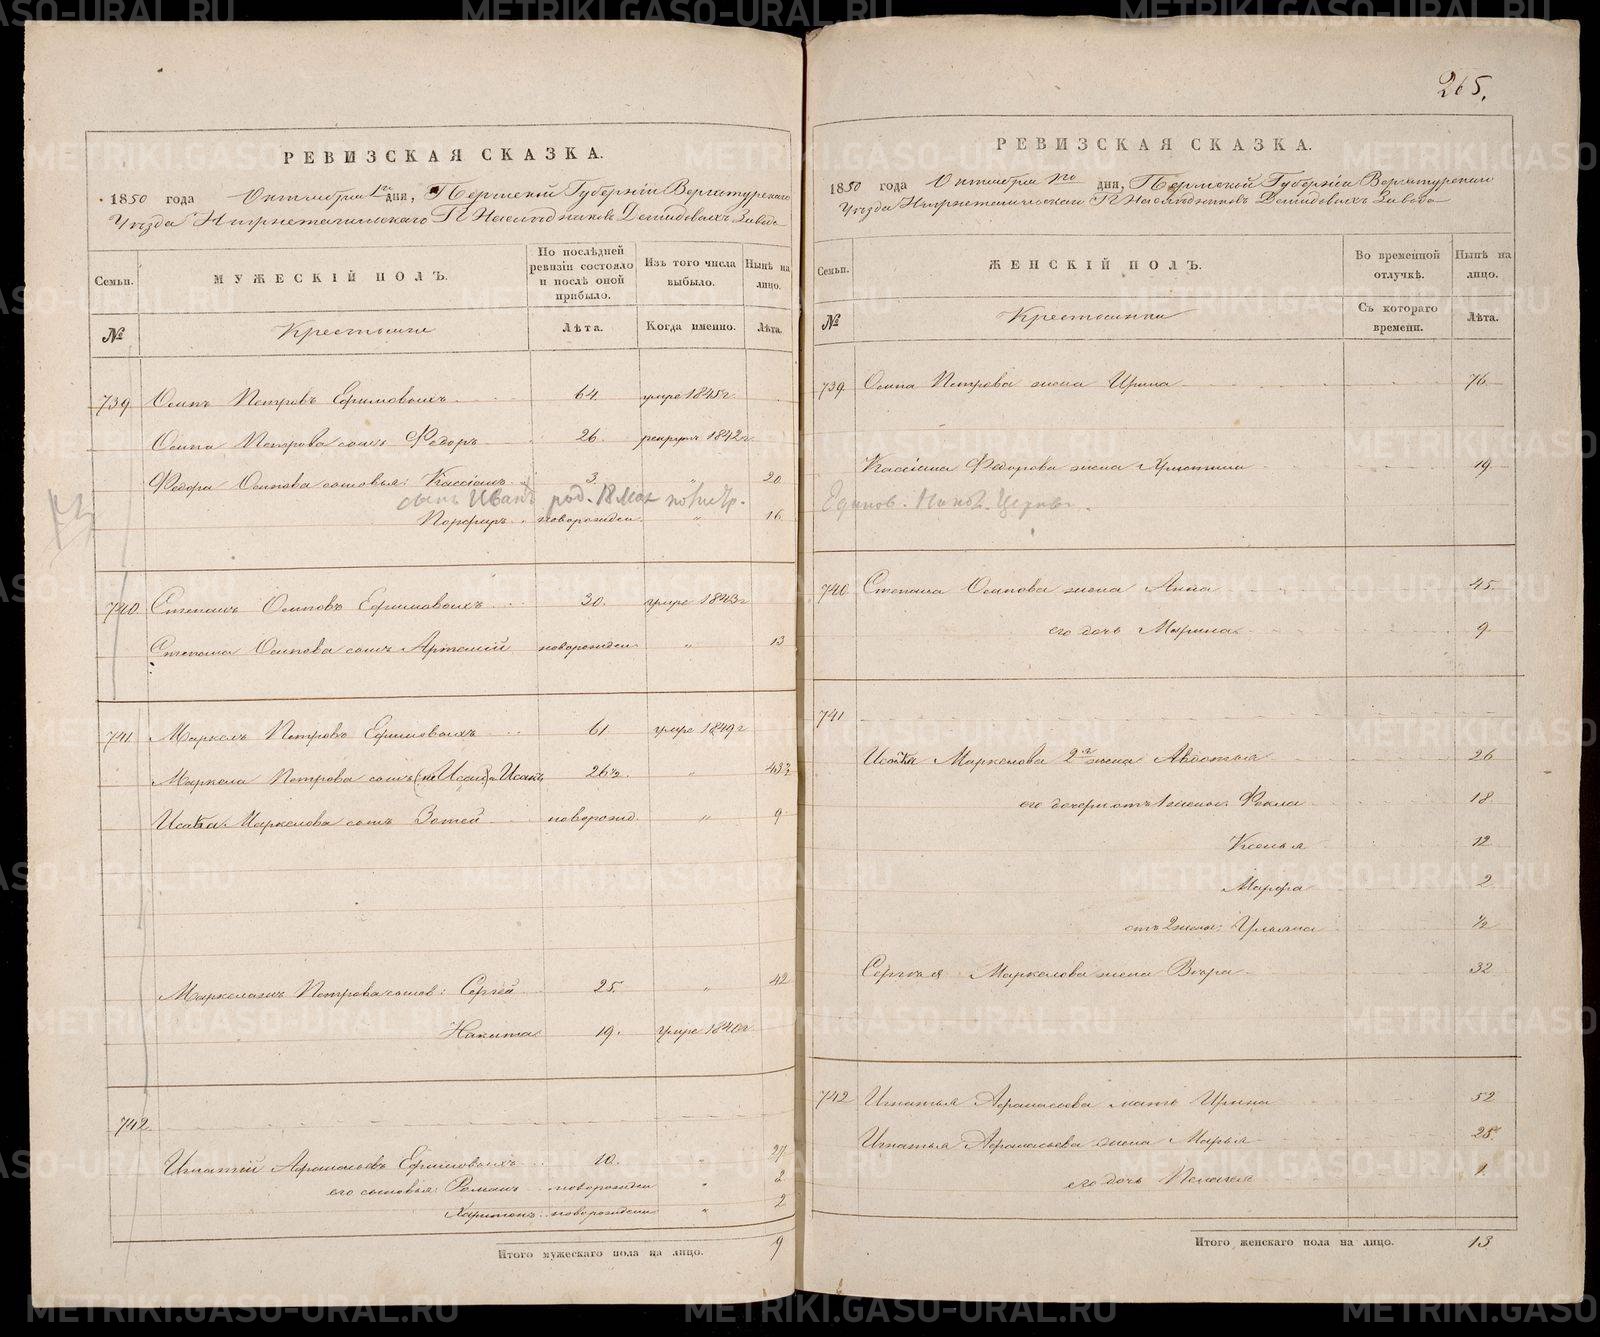 РЕВИЗСКАЯ СКАЗКА.
1850 года Октября 1го дня, Пермской Губерніи Верхотурскаго
Уѣзда Нижнетагильскаго Гг Наслѣдниковъ Демидовыхъ Завода
Семьи. МУЖЕСКІЙ ПОЛЪ. По послѣдней ревизіи состояло и послѣ оной прибыло. Изъ того числа выбыло. Нынѣ на лицо.
№ Крестьяне Лѣта. Когда именно. Лѣта.
739 Осипъ Петровъ Ефимовыхъ 64. умре 1845г.
Осипа Петрова сынъ Федоръ 26. рекрут. 1842г
Федора Осипова сыновья: Кассіанъ 3. " 20
сынъ Иванъ род. 18 мая
Порфиръ новорожден. " 16
740 Степанъ Осиповъ Ефимовыхъ 30. умре 1843г
Степана Осипова сынъ Артемій новорожден. " 13
741 Маркелъ Петровъ Ефимовыхъ 61 умре 1849г
Маркела Петрова сынъ Исакъ 26½. " 43½
Исака Маркелова сынъ Зотей новорожд. " 9
Маркела Петрова сынов: Сергей 25. " 42
Никита 19. умре 1840г
742
Игнатій Афанасьевъ Ефимовыхъ 10. " 27
его сыновья: Романъ новорожден " 2
Харитонъ новорожден " 2
Итого мужескаго пола на лицо. 9
265.
РЕВИЗСКАЯ СКАЗКА.
1850 года Октября 1го дня, Пермской Губерніи Верхотурскаго
Уѣзда Нижнетагильскаго Гг Наслѣдниковъ Демидовыхъ Завода
Семьи. ЖЕНСКІЙ ПОЛЪ. Во временной отлучкѣ. Нынѣ на лицо.
№ Крестьянки Съ котораго времени. Лѣта.
739 Осипа Петрова жена Ирина 76
Кассіана Федорова жена Христина 19
Единов. Никол. Церкви.
740 Степана Осипова жена Анна 45.
его дочь Марина 9
741
Исака Маркелова 2я жена Авдотья 26
его дочери отъ 1 жены: Фекла 18
Ксенья 12
Марфа 2
отъ 2 жены: Ульяна ½
Сергѣя Маркелова жена Вѣра 32
742 Игнатья Афанасьева мать Ирина 52
Игнатья Афанасьева жена Марья 25.
его дочь Пелагея 1
Итого женскаго пола на лицо. 13
METRIKI.GASO-URAL.RU